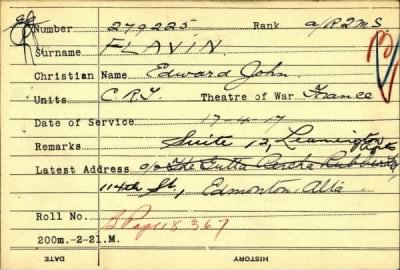 Number 279225 Rank a/R2MS
Surname FLAVIN.
Christian Name Edward John.
Units C.R.T. Theatre of War France
Date of Service 17-4-17
Remarks Suite 12, Leamington
Latest Address c/o The Gutta Percha Rubber
114th St., Edmonton, Alta
Roll No. B Page 18367
200m.-2-21.M.
DATE HISTORY